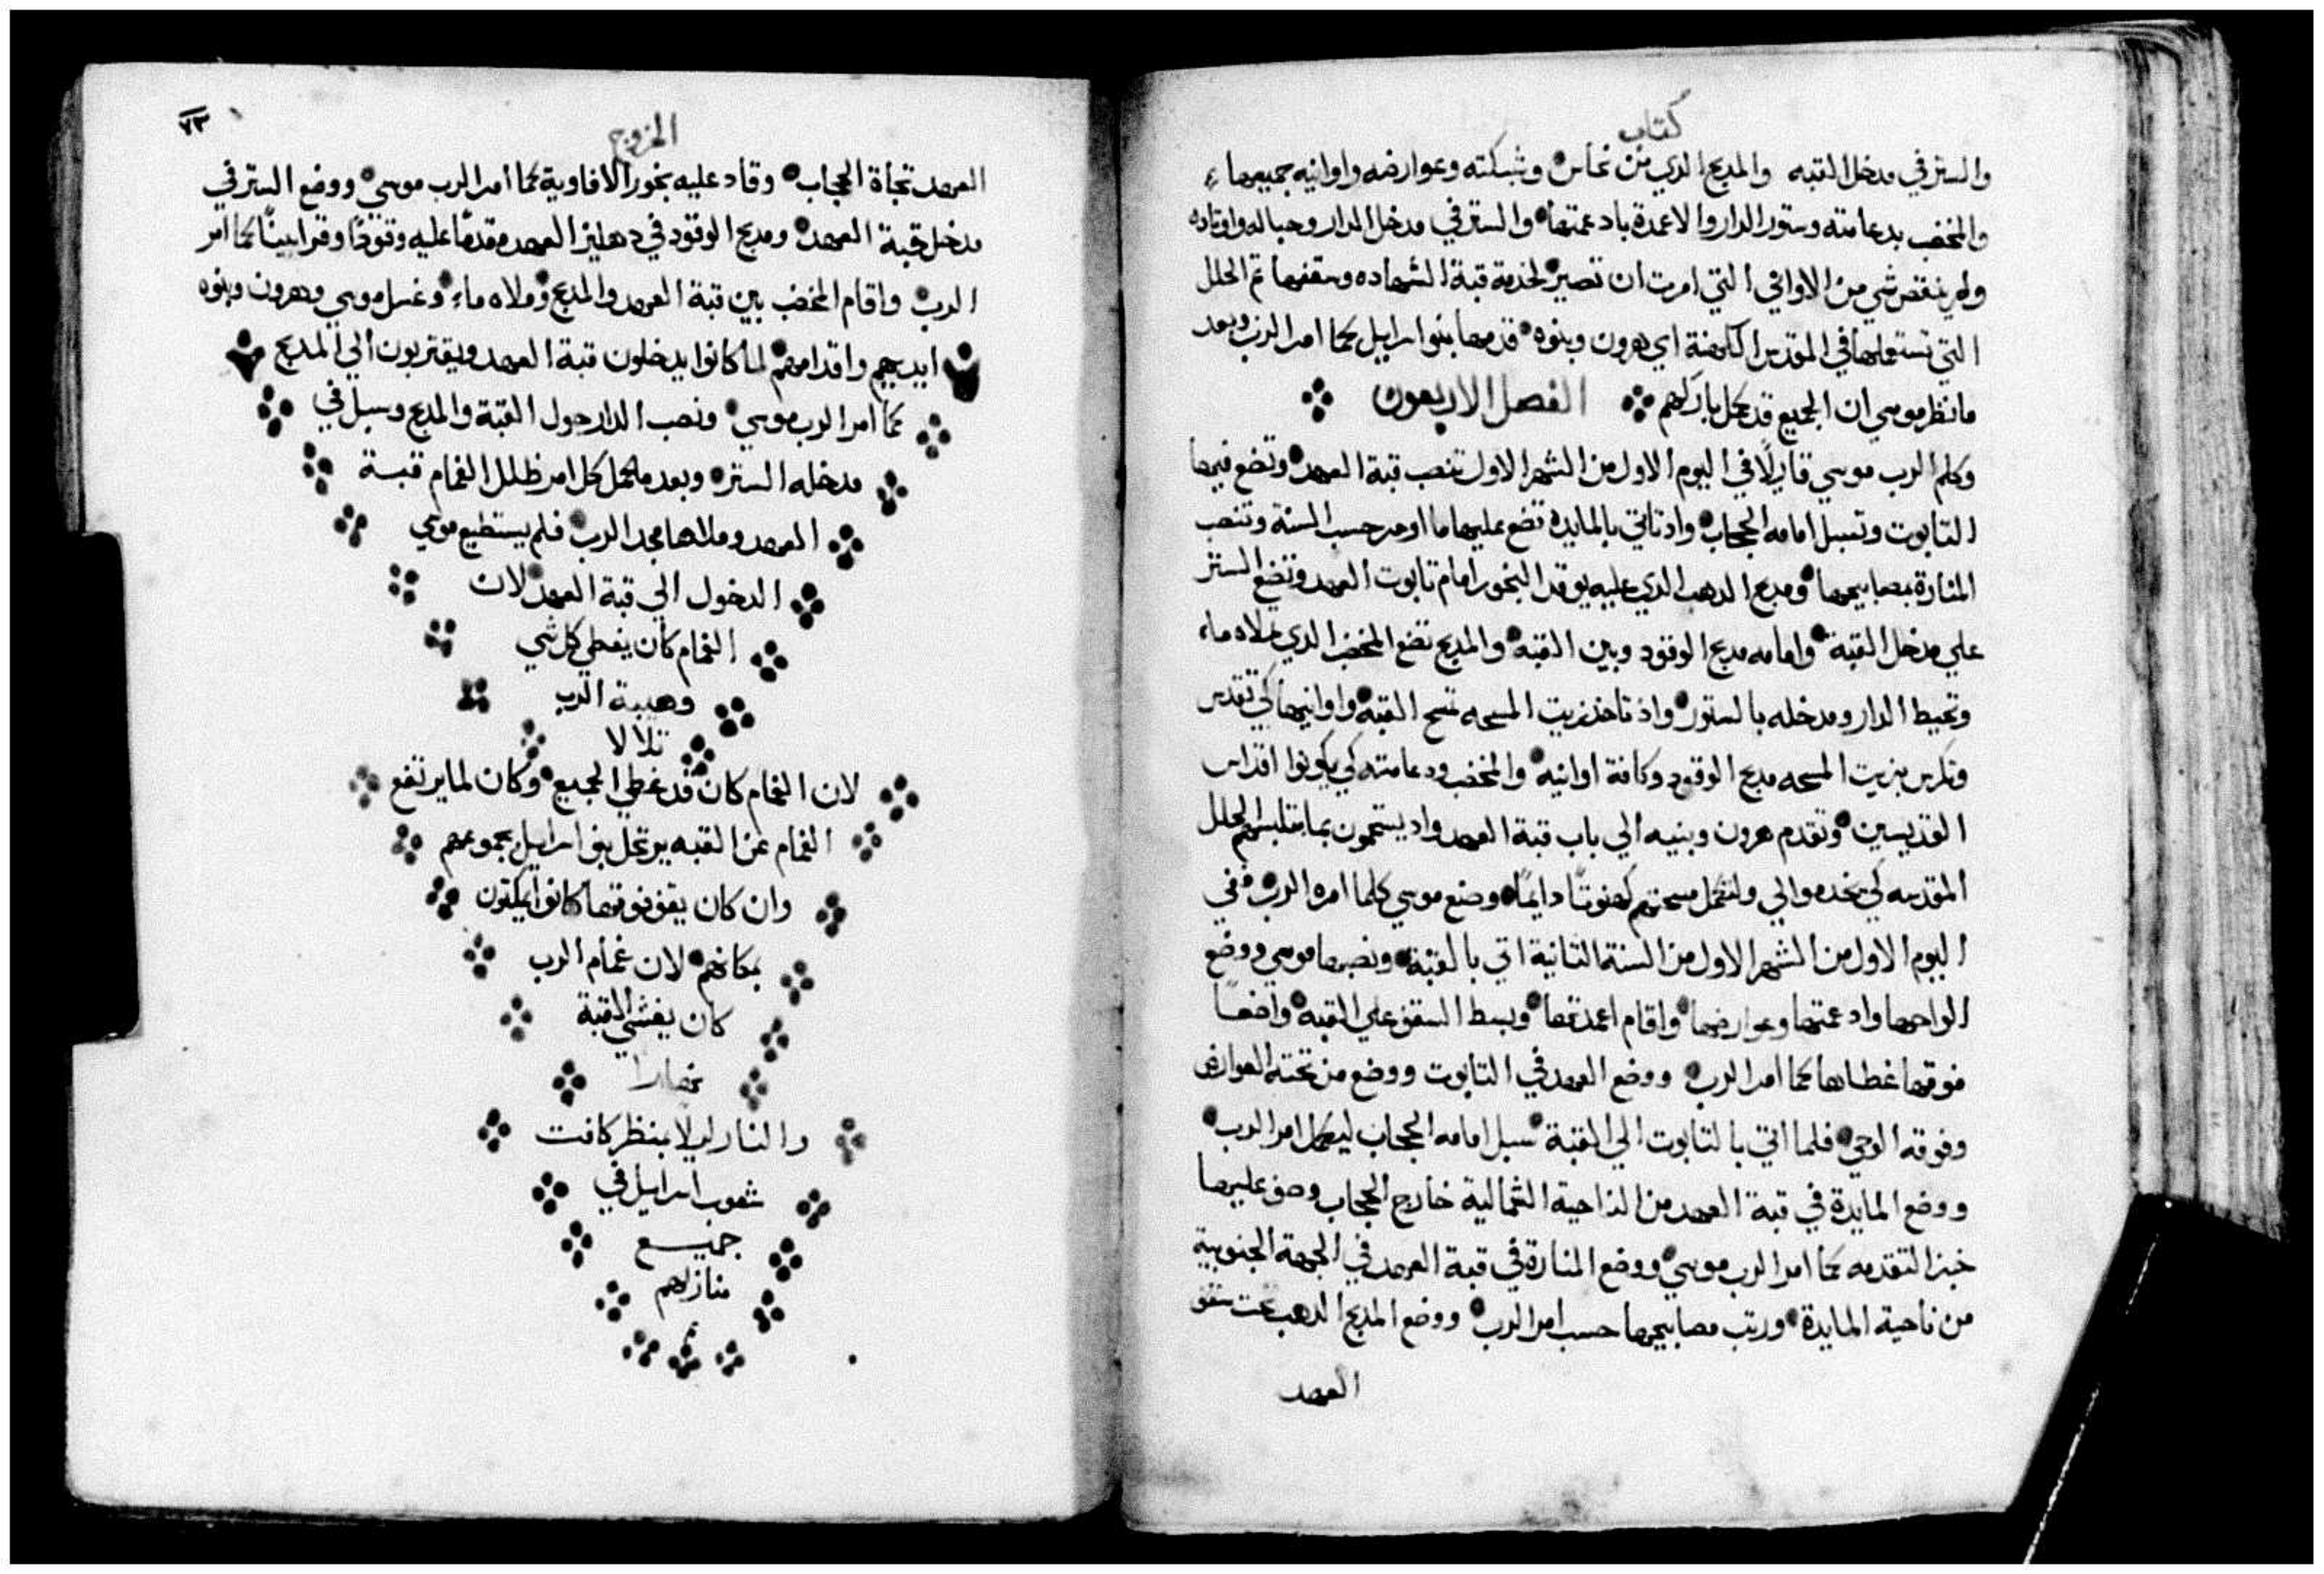 كتاب
والستر في مدخل القبه والمدبح الدي من نحاس وشبكته وعوارضه واوانيه جميعها
والمخضب بدعامته وستور الدار والاعمدة بادعمتها والستر في مدخل الدار وحباله واوتاده
ولم ينقص شي من الاواني التي امرت ان تصير لخدمة قبة الشهاده وسقفها تم الحلل
التي تستعملها في المقدس الكهنة اي هرون وبنوه قدمها بنو اسراييل كما امر الرب وبعد
ما نظر موسي ان الجميع قد كمل باركهم الفصل الاربعون
وكلم الرب موسي قايلًا في اليوم الاول من الشهر الاول تنصب قبة العهد وتضع فيها
التابوت وتسبل امامه الحجاب واد تاتي بالمايدة تضع عليها ما اوعد حسب السنة وتنصب
المنارة بمصابيحها ومدبح الدهب الدي عليه يوقد البخور امام تابوت العهد وتضع الستر
علي مدخل القبة وامامه مدبح الوقود وبين القبة والمدبح تضع المخضب الدي تملاه ماء
وتحيط الدار ومدخله بالستور واذ تاخذ زيت المسحه تمسح القبة واوانيها كي تقدس
وتكرس بزيت المسحه مدبح الوقود وكافة اوانيه والمخضب ودعامته كي يكونوا اقداس
القديسين وتقدم هرون وبنيه الي باب قبة العهد واد يستحمون بما تلبسهم الحلل
المقدسه كي يخدموا لي ولتكمل مسحتهم كهنوتًا دايمًا وصنع موسي كلما امره الرب ففي
اليوم الاول من الشهر الاول من السنة الثانية اتي بالقبة ونصبها موسي ووضع
الواحها وادعمتها وعوارضها واقام اعمدتها وبسط السقف علي القبة واضعًا
فوقها غطاها كما امر الرب ووضع العهد في التابوت ووضع من تحته العوارض
وفوقه الوحي فلما اتي بالتابوت الي القبة سبل امامه الحجاب ليكمل امر الرب
ووضع المايدة في قبة العهد من الناحية الشمالية خارج الحجاب وصف عليها
خبز التقدمه كما امر الرب موسي ووضع المنارة في قبة العهد في الجهة الجنوبية
من ناحية المايدة ورتب مصابيحها حسب امر الرب ووضع المدبح الدهب تحت سقف
العهد
الخروج
٧٣
العهد تجاة الحجاب وقاد عليه بخور الافاوية كما امر الرب موسي ووضع الستر في
مدخل قبة العهد ومدبح الوقود في دهليز العهد مقدمًا عليه وقودًا وقرابينًا كما امر
الرب واقام المخضب بين قبة العهد والمدبح وملاه ماء وغسل موسي وهرون وبنوه
ايديهم واقدامهم لما كانوا يدخلون قبة العهد ويقتربون الي المدبح
كما امر الرب موسي ونصب الدار حول القبة والمدبح وسبل في
مدخله الستر وبعد ما كمل كل امر ظلل الغمام قبة
العهد وملاها مجد الرب فلم يستطيع موسي
الدخول الي قبة العهد لان
الغمام كان يغطي كل شي
وهيبة الرب
تلالا
لان الغمام كان قد غطي الجميع وكان لما يرتفع
الغمام عن القبه يرتحل بنو اسراييل بجموعهم
وان كان يقف فوقها كانوا يمكثون
بمكانهم لان غمام الرب
كان يغشي القبة
نهارا
والنار ليلا بمنظر كافت
شعوب اسراييل في
جميع
منازلهم